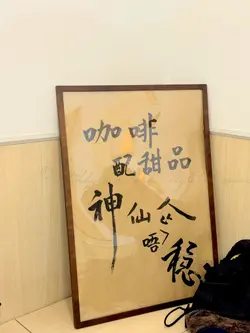 咖啡
配甜品
神仙企
唔
稳